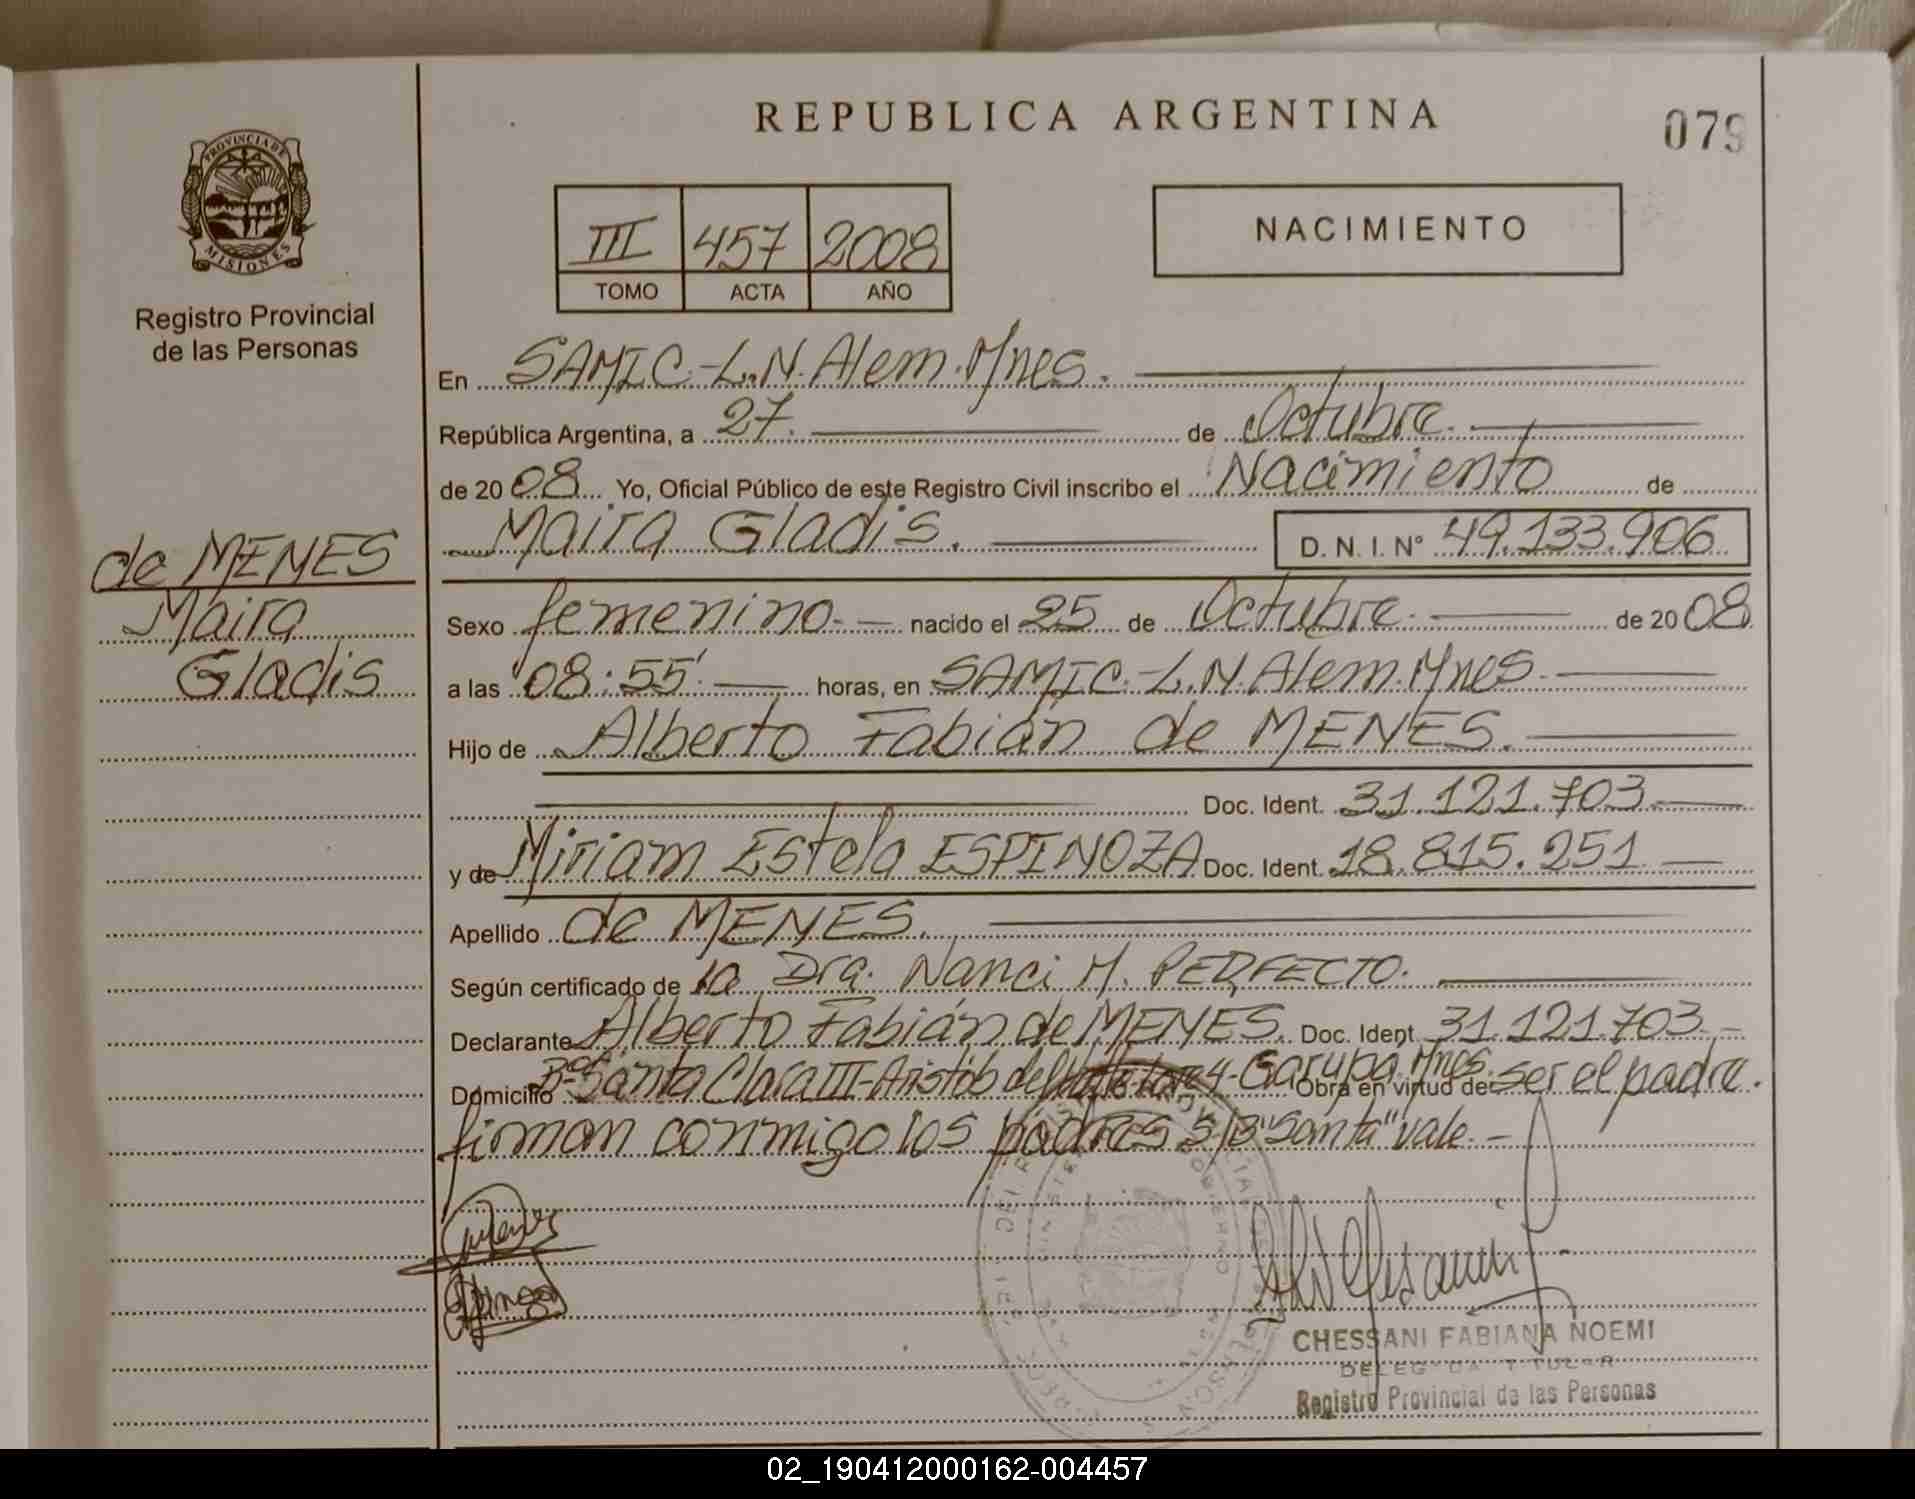 REPUBLICA ARGENTINA
079
PROVINCIA DE
MISIONES
Registro Provincial
de las Personas
III 457 2008
TOMO ACTA AÑO
NACIMIENTO
En SAMIC.-L.N.Alem.Mnes.
República Argentina, a 27. de Octubre.
de 2008 Yo, Oficial Público de este Registro Civil inscribo el Nacimiento de
Maira Gladis. D. N. I. Nº 49.133.906
de MENES
Maira
Gladis
Sexo femenino.- nacido el 25 de Octubre. de 2008
a las 08:55' horas, en SAMIC.-L.N.Alem.Mnes.
Hijo de Alberto Fabián de MENES.
Doc. Ident. 31.121.703
y de Miriam Estela ESPINOZA Doc. Ident. 18.815.251
Apellido de MENES.
Según certificado de la Dra. Nanci M. PERFECTO.
Declarante Alberto Fabián de MENES. Doc. Ident. 31.121.703.-
Domicilio Bº Santa Clara III-Aristób del Valle 4-Garupa.Mnes. Obra en virtud de: ser el padre.
firman conmigo los padres S/B"Santa" vale.-
CHESSANI FABIANA NOEMI
DELEGADA TITULAR
Registro Provincial de las Personas
02_190412000162-004457